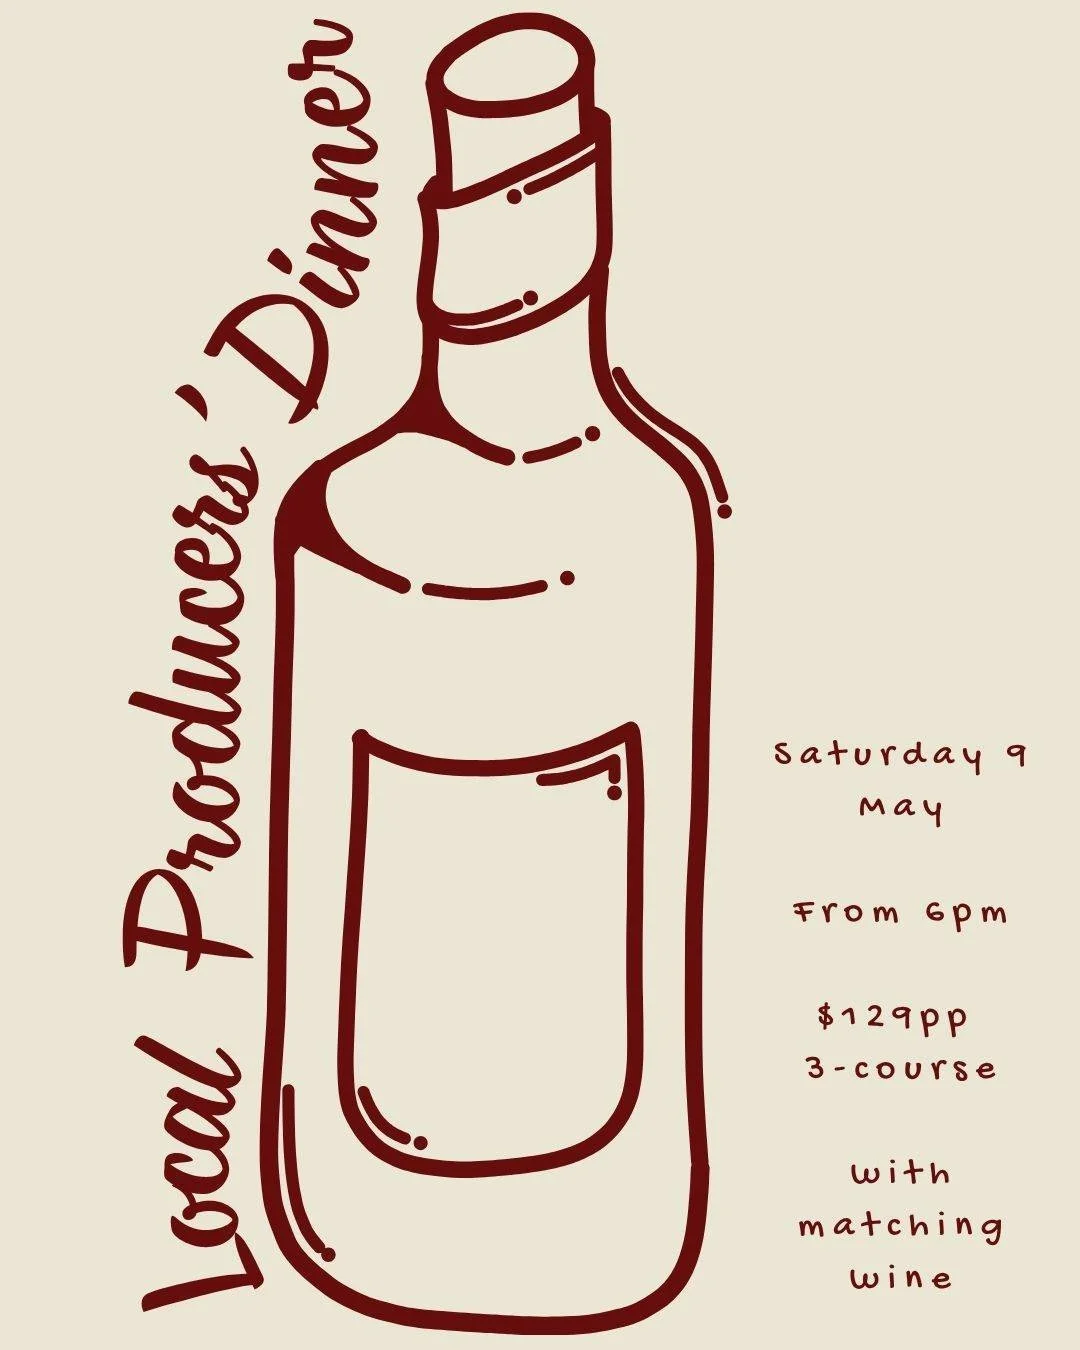 Local Producers' Dinner
Saturday 9
May
From 6pm
$129pp
3-course
with
matching
wine